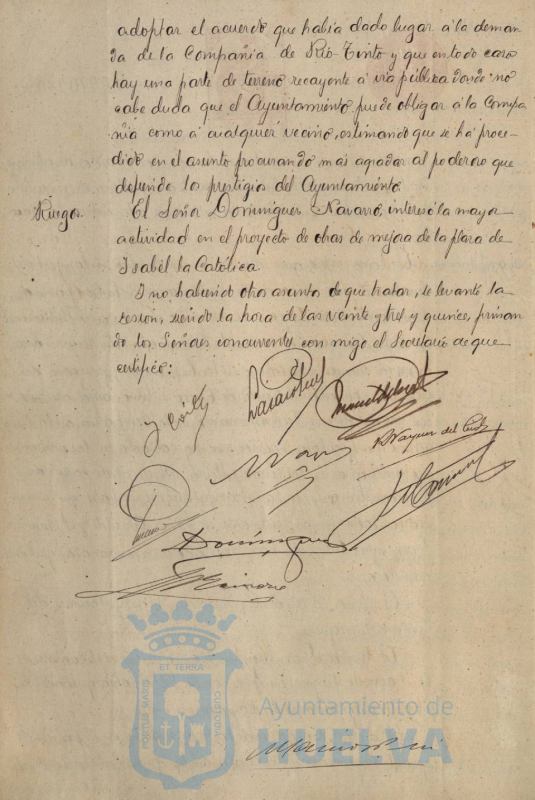 adoptar el acuerdo que había dado lugar á la deman
da de la Compañía de Rio-Tinto y que en todo caso
hay una parte de terreno recayente á via pública donde no
cabe duda que el Ayuntamiento puede obligar á la Compa
ñia como á cualquier vecino, estimando que se há proce-
dido en el asunto procurando mas agradar al poderoso que
defender los prestigios del Ayuntamiento.
Ruegos
El Señor Dominguez Navarro, interesó la mayor
actividad en el proyecto de obras de mejora de la plaza de
Isabel la Católica.
I no habiendo otro asunto de que tratar, se levantó la
sesión, siendo la hora de las veinte y tres y quince, firman
do los Señores concurrentes con migo el Secretario de que
certifico:
R Vazquez del Cid
Domínguez
ET TERRA
PORTUS MARIS
CUSTODIA
Ayuntamiento de
HUELVA